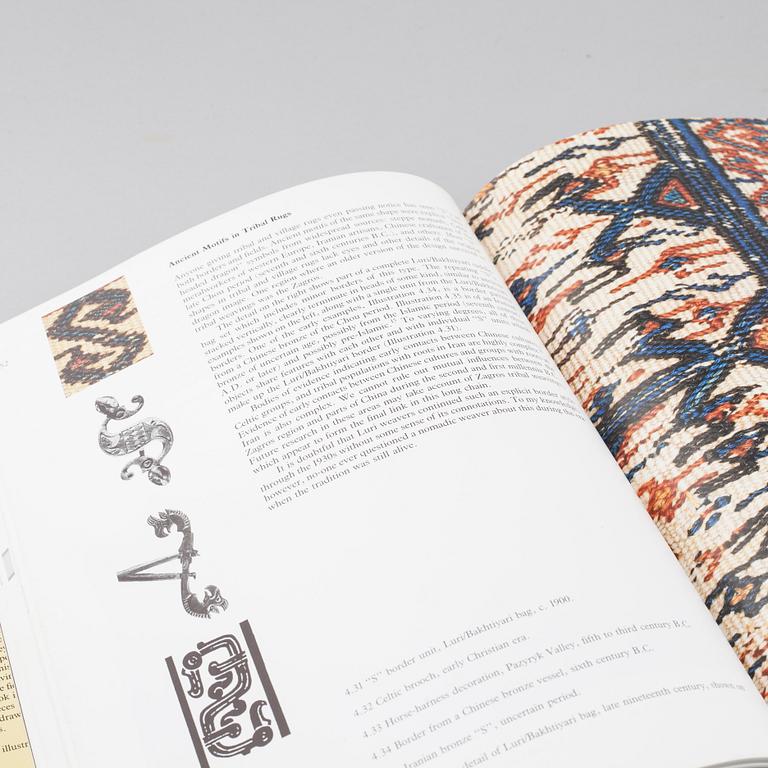 Ancient Motifs in Tribal Rugs
Anyone giving tribal and village rugs even passing notice has
both borders and fields. Ancient motifs of the same shape were
headed dragon" symbols from widespread sources: steppe
metalworkers of western Europe, Iranian artisans, Chinese
late Chou period seventh and sixth centuries B.C., and other
shapes in tribal and village rugs lack eyes and other details of the
dragon image. One region where an older version of the design
tribal weavings was the Zagros.
The detail on the right shows part of a complete Luri/Bakhtiyari
bag, which includes minor borders of this type. The repeating
stacked vertically, clearly terminate in heads of some kind, similar
examples shown on the left, along with a single unit from the Luri/
border. One of the early examples, Illustration 4.34, is a border
from a Chinese bronze of the Chou period. Illustration 4.35 is of an
bronze of uncertain age, possibly from the Islamic period (seventh
objects share features with each other and with individual "S"
make up the Luri/Bakhtiyari border (Illustration 4.31).
Bodies of evidence indicating early contacts between Chinese
Celtic groups, and tribal populations with roots in Iran are highly
Evidence of early contacts between Chinese cultures and groups with
Iran is also complex. We cannot rule out mutual influences between
Zagros region and parts of China during the second and first millennia
Future research in these areas may take account of Zagros tribal
which appear to form the final link in this long chain.
It is doubtful that Luri weavers continued such an explicit border
through the 1930s without some sense of its connotations. To my knowledge
however, no-one ever questioned a nomadic weaver about this during the
when the tradition was still alive.
4.31 "S" border unit, Luri/Bakhtiyari bag, c. 1900.
4.32 Celtic brooch, early Christian era.
4.33 Horse-harness decoration, Pazyryk Valley, fifth to third century B.C.
4.34 Border from a Chinese bronze vessel, sixth century B.C.
Iranian bronze "S", uncertain period.
detail of Luri/Bakhtiyari bag, late nineteenth century, shown on
draw
s.
illustr